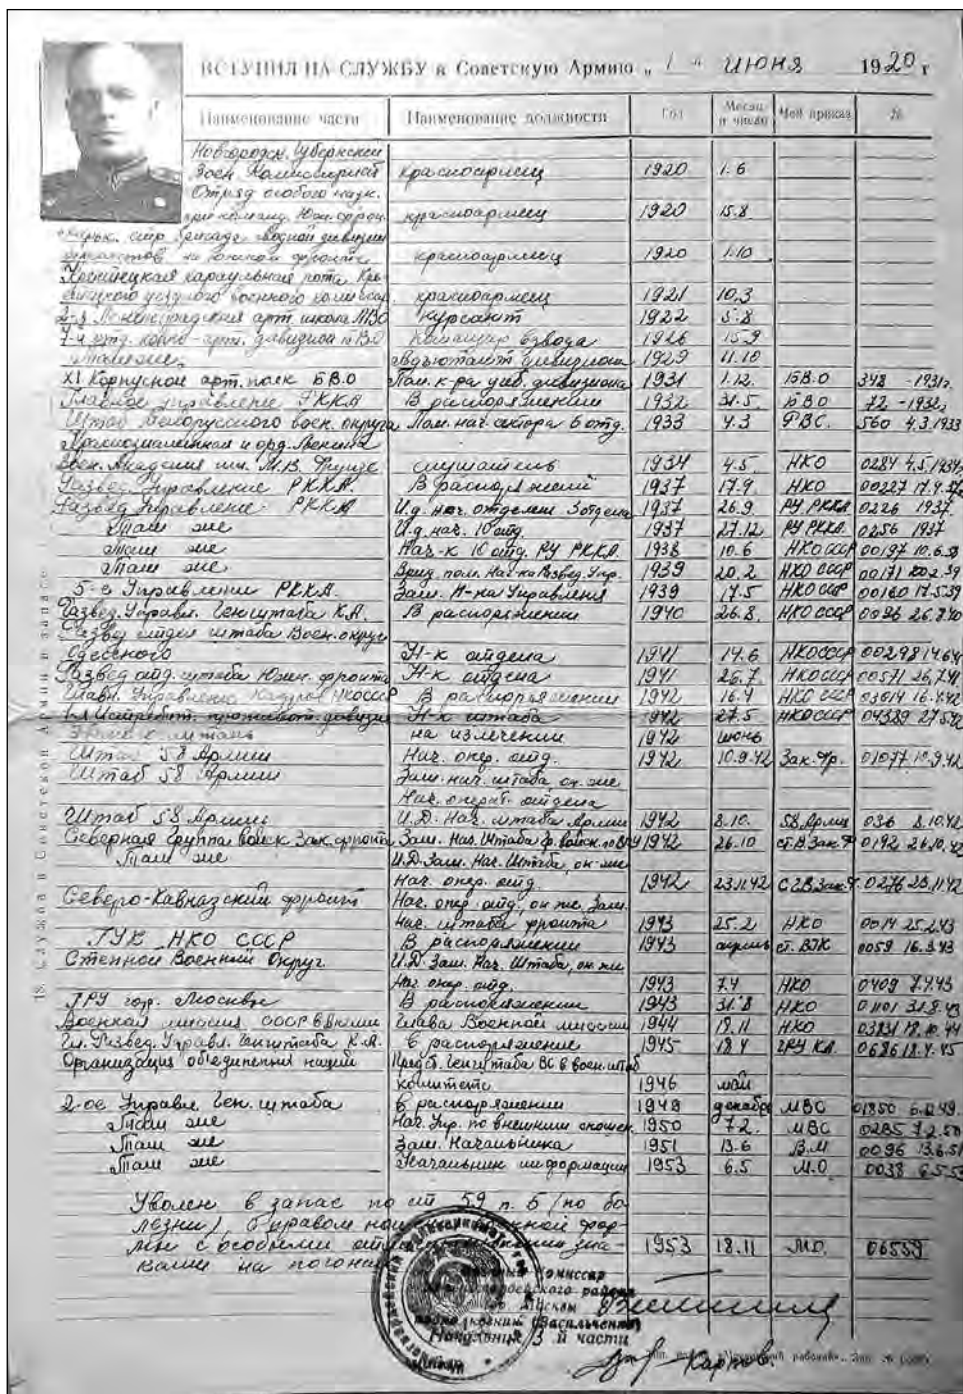 ВСТУПИЛ НА СЛУЖБУ в Советскую Армию „ 1 " июня 1920 г
Наименование части Наименование должности Год Месяц и число Чей приказ №
Новгородск. Губернский
Воен. Комиссариат красноармеец 1920 1.6
Отряд особого назн.
при команд. Южн. фрон. красноармеец 1920 15.8
стр. бригада сводной дивизии
курсантов на южном фронте красноармеец 1920 1.10
караульная рота
уездного военного комиссар. красноармеец 1921 10.3
2-я Ленинградская арт. школа курсант 1922 5.8
7-й отд. конно-арт. дивизион БВО командир взвода 1926 15.9
там же адъютант дивизиона 1929 11.10
XI Корпусной арт. полк БВО Пом. к-ра учеб. дивизиона 1931 1.12. БВО 348 -1931г.
Главное управление РККА В распоряжении 1932 31.5. БВО 72 -1932г
Штаб Белорусского воен. округа Пом. нач. сектора 6 отд. 1933 4.3 РВС. 560 4.3.1933
Краснознаменная и орд. Ленина
Воен. Академия им. М.В. Фрунзе слушатель 1934 4.5 НКО 0284 4.5.1934
Развед. Управление РККА. В распоряжении 1937 17.9. НКО 00227 17.9.37
Развед. Управление РККА И.д. нач. отделен. 3 отдела 1937 26.9. РУ РККА 0226 1937.
Там же И.д. нач. 10 отд. 1937 27.12 РУ РККА. 0256 1937
Там же Нач-к 10 отд. РУ РККА. 1938 10.6 НКО СССР 00197 10.6.38
Там же Врид. пом. Нач-ка Развед. Упр. 1939 20.2. НКО СССР 00171 20.2.39
5-е Управление РККА. Зам. Н-ка Управления 1939 17.5 НКО СССР 00160 17.5.39
Развед. Управл. Генштаба К.А. В распоряжении 1940 26.8. НКО СССР 0096 26.8.40
Развед отдел штаба Воен. округа
Одесского Н-к отдела 1941 14.6 НКО СССР 00298 14.6.41
Развед отд. штаба Южн. фронта Н-к отдела 1941 26.7. НКО СССР 00571 26.7.41
Главн. Управление Кадров НКО СССР В распоряжении 1942 16.4 НКО СССР 03014 16.4.42
1-я Истребит. противот. дивизия Н-к штаба 1942 27.5 НКО СССР 04389 27.5.42
на излечении 1942 июнь
Штаб 58 Армии Нач. опер. отд. 1942 10.9.42 Зак. Фр. 01077 10.9.42
Штаб 58 Армии Зам. нач. штаба, он же
Нач. операт. отдела
Штаб 58 Армии И.Д. Нач. штаба Армии 1942 8.10. 58 Армия 036 8.10.42
Северная Группа Войск Зак. фронта Зам. Нач. Штаба 1942 26.10 0192 26.10.42
Там же И.Д. Зам. Нач. Штаба, он же
Нач. опер. отд. 1942 23.11.42 0276 23.11.42
Северо-Кавказский фронт Нач. опер. отд., он же Зам.
Нач. штаба фронта 1943 25.2 НКО 0014 25.2.43
ГУК НКО СССР В распоряжении 1943 апрель 0059 16.3.43
Степной Военный Округ И.Д. Зам. Нач. Штаба, он же
Нач. опер. отд. 1943 7.4 НКО 0409 7.4.43
ГРУ гор. Москва В распоряжении 1943 31.8 НКО 01101 31.8.43
Военная миссия СССР Глава Военной миссии 1944 18.11 НКО 03831 18.10.44
Гл. Развед. Управл. Генштаба К.А. в распоряжение 1945 18.4 ГРУ КА. 0686 18.4.45
Организация объединенных наций Предст. Генштаба ВС в воен. штаб
комитете 1946 май
2-ое Управл. Ген. штаба в распоряжении 1949 декабрь МВС 01850 6.12.49.
Там же Нач. Упр. по внешним сношен. 1950 7.2. МВС 0285 7.2.50
Там же Зам. Начальника 1951 13.6 В.М 0096 13.6.51
Там же Начальник информации 1953 6.5 М.О 0038 6.5.53
Уволен в запас по ст 59 п. б (по бо-
лезни), с правом фор-
мы с особыми зна- 1953 18.11 МО. 06559
ками на погонах
комиссар
района
Москвы
(Васильченко)
Начальник 3-й части
Карпов.
18. Служба в Советской Армии и запасе